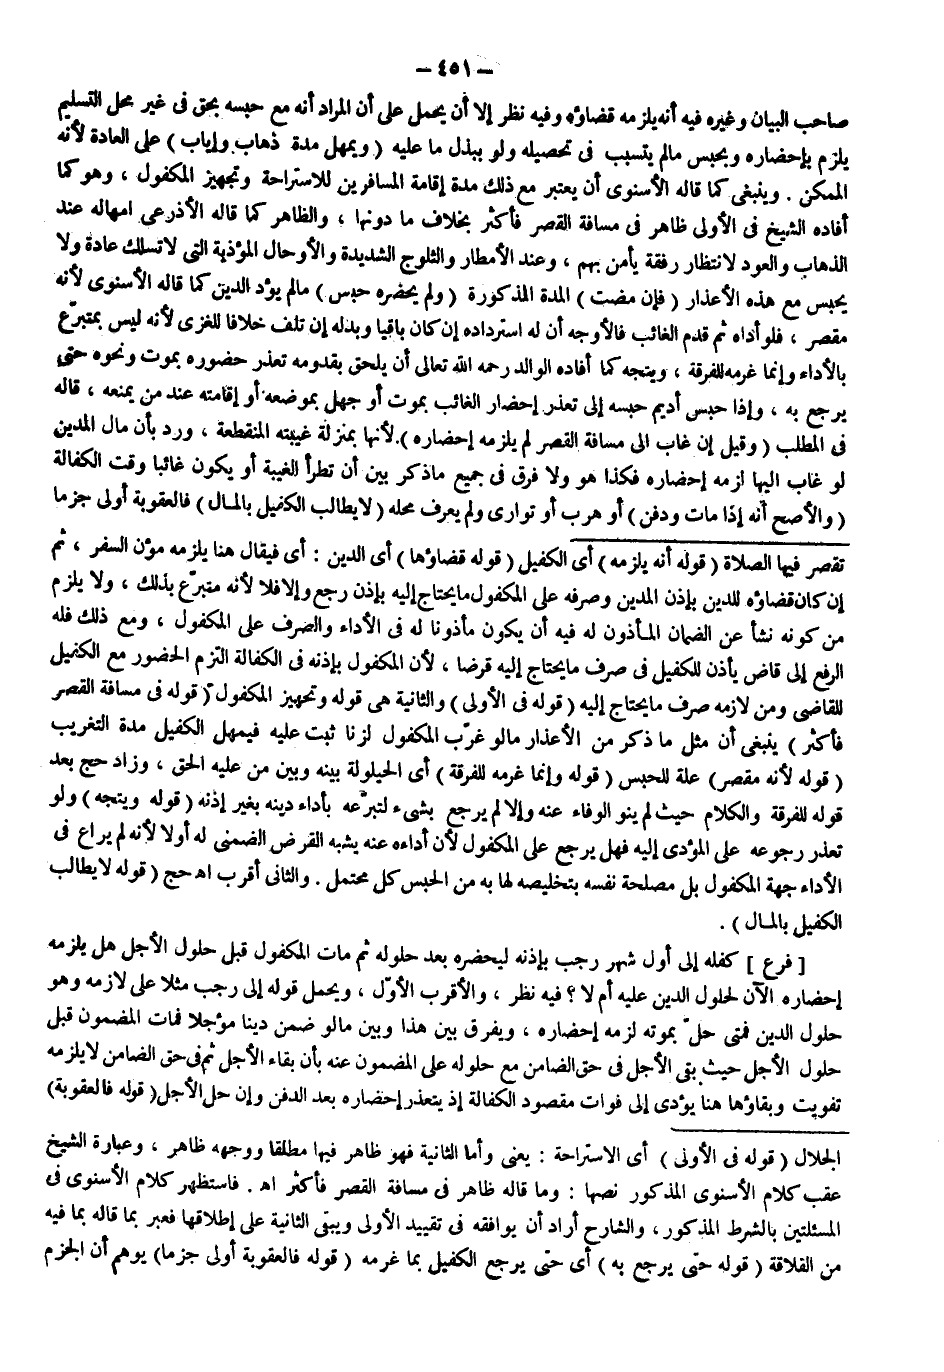 – ٤٥١ –
صاحب البيان وغيره فيه أنه يلزمه قضاؤه وفيه نظر إلا أن يحمل على أن المراد أنه مع حبسه بحق فى غير محل التسليم
يلزم بإحضاره ويحبس مالم يتسبب فى تحصيله ولو ببذل ما عليه ( ويمهل مدة ذهاب وإياب ) على العادة لأنه
الممكن . وينبغى كما قاله الأسنوى أن يعتبر مع ذلك مدة إقامة المسافرين للاستراحة وتجهيز المكفول ، وهو كما
أفاده الشيخ فى الأولى ظاهر فى مسافة القصر فأكثر بخلاف ما دونها ، والظاهر كما قاله الأذرعى امهاله عند
الذهاب والعود لانتظار رفقة يأمن بهم ، وعند الأمطار والثلوج الشديدة والأوحال المؤذية التى لاتسلك عادة ولا
يحبس مع هذه الأعذار ( فإن مضت ) المدة المذكورة ( ولم يحضره حبس ) مالم يؤد الدين كما قاله الأسنوى لأنه
مقصر ، فلو أداه ثم قدم الغائب فالأوجه أن له استرداده إن كان باقيا وبدله إن تلف خلافا للغزى لأنه ليس بمتبرّع
بالأداء وإنما غرمه للفرقة ، ويتجه كما أفاده الوالد رحمه الله تعالى أن يلحق بقدومه تعذر حضوره بموت ونحوه حتى
يرجع به ، وإذا حبس أديم حبسه إلى تعذر إحضار الغائب بموت أو جهل بموضعه أو إقامته عند من يمنعه ، قاله
فى المطلب ( وقيل إن غاب الى مسافة القصر لم يلزمه إحضاره ) لأنها بمنزلة غيبته المنقطعة ، ورد بأن مال المدين
لو غاب اليها لزمه إحضاره فكذا هو ولا فرق فى جميع ماذكر بين أن تطرأ الغيبة أو يكون غائبا وقت الكفالة
( والأصح أنه إذا مات ودفن ) أو هرب أو توارى ولم يعرف محله ( لايطالب الكفيل بالمـال ) فالعقوبة أولى جزما
تقصر فيها الصلاة ( قوله أنه يلزمه ) أى الكفيل ( قوله قضاؤها ) أى الدين : أى فيقال هنا يلزمه مؤن السفر ، ثم
إن كان قضاؤه للدين بإذن المدين وصرفه على المكفول مايحتاج إليه بإذن رجع وإلا فلا لأنه متبرّع بذلك ، ولا يلزم
من كونه نشأ عن الضمان المـأذون له فيه أن يكون مأذونا له فى الأداء والصرف على المكفول ، ومع ذلك فله
الرفع إلى قاض يأذن للكفيل فى صرف مايحتاج إليه قرضا ، لأن المكفول بإذنه فى الكفالة التزم الحضور مع الكفيل
للقاضى ومن لازمه صرف مايحتاج إليه ( قوله فى الأولى ) والثانية هى قوله وتجهيز المكفول ( قوله فى مسافة القصر
فأكثر ) ينبغى أن مثل ما ذكر من الأعذار مالو غرّب المكفول لزنا ثبت عليه فيمهل الكفيل مدة التغريب
( قوله لأنه مقصر ) علة للحبس ( قوله وإنما غرمه للفرقة ) أى الحيلولة بينه وبين من عليه الحق ، وزاد حج بعد
قوله للفرقة والكلام حيث لم ينو الوفاء عنه وإلا لم يرجع بشىء لتبرّعه بأداء دينه بغير إذنه ( قوله ويتجه ) ولو
تعذر رجوعه على المؤدى إليه فهل يرجع على المكفول لأن أداءه عنه يشبه القرض الضمنى له أولا لأنه لم يراع فى
الأداء جهة المكفول بل مصلحة نفسه بتخليصه لها به من الحبس كل محتمل . والثانى أقرب اه حج ( قوله لايطالب
الكفيل بالمـال ) .
[ فرع ] كفله إلى أول شهر رجب بإذنه ليحضره بعد حلوله ثم مات المكفول قبل حلول الأجل هل يلزمه
إحضاره الآن لحلول الدين عليه أم لا ؟ فيه نظر ، والأقرب الأوّل ، ويحمل قوله إلى رجب مثلا على لازمه وهو
حلول الدين فمتى حلّ بموته لزمه إحضاره ، ويفرق بين هذا وبين مالو ضمن دينا مؤجلا فمات المضمون قبل
حلول الأجل حيث بقى الأجل فى حق الضامن مع حلوله على المضمون عنه بأن بقاء الأجل ثم فى حق الضامن لايلزمه
تفويت وبقاؤها هنا يؤدى إلى فوات مقصود الكفالة إذ يتعذر إحضاره بعد الدفن وإن حل الأجل ( قوله فالعقوبة )
الجلال ( قوله فى الأولى ) أى الاستراحة : يعنى وأما الثانية فهو ظاهر فيها مطلقا ووجهه ظاهر ، وعبارة الشيخ
عقب كلام الأسنوى المذكور نصها : وما قاله ظاهر فى مسافة القصر فأكثر اه . فاستظهر كلام الأسنوى فى
المسئلتين بالشرط المذكور ، والشارح أراد أن يوافقه فى تقييد الأولى ويبقى الثانية على إطلاقها فعبر بما قاله بما فيه
من القلاقة ( قوله حتى يرجع به ) أى حتى يرجع الكفيل بما غرمه ( قوله فالعقوبة أولى جزما ) يوهم أن الجزم